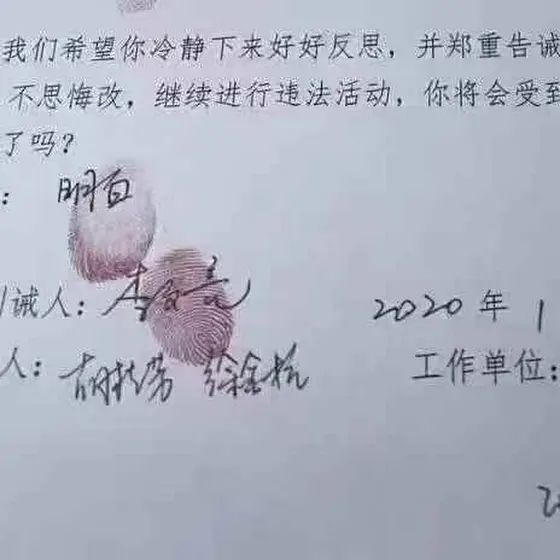 我们希望你冷静下来好好反思，并郑重告诫
不思悔改，继续进行违法活动，你将会受到
了吗？
：明白
训诫人：李文亮 2020年1
人：胡桂芳 徐金杭 工作单位：